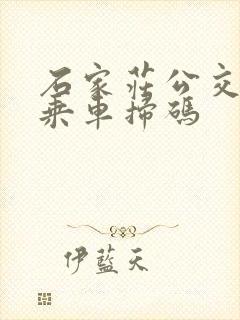 石家莊公交
乘車掃碼
伊藍天